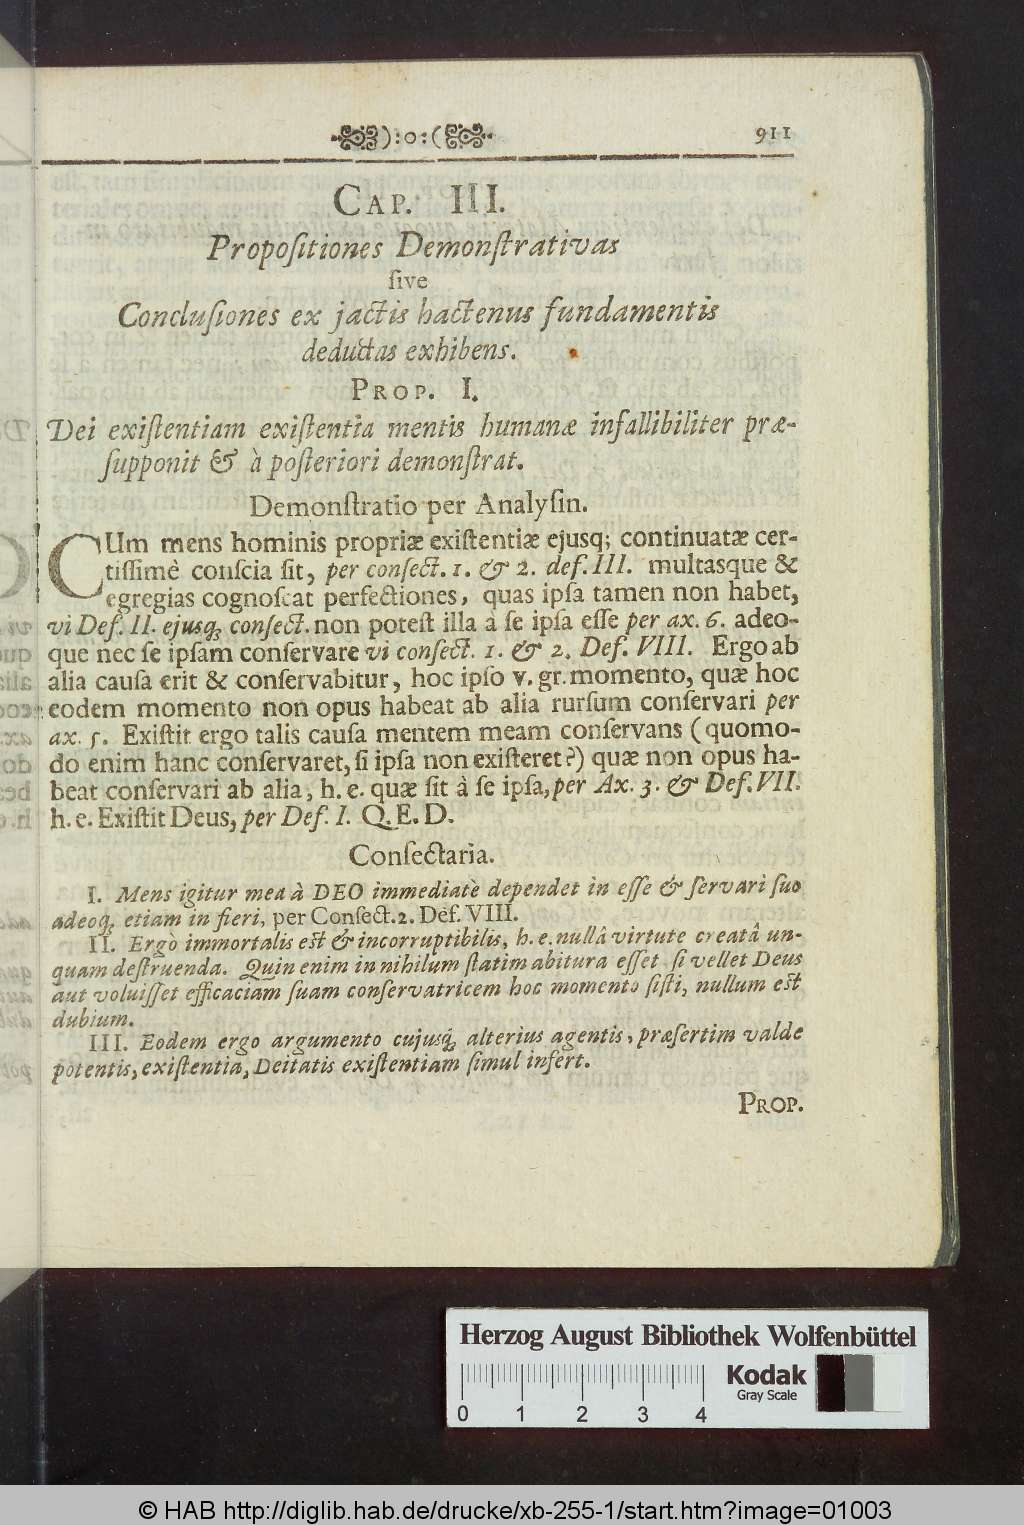 ):o:( 911
CAP. III.
Propoſitiones Demonſtrativas
ſive
Concluſiones ex jactis hactenus fundamentis
deductas exhibens.
PROP. I.
Dei exiſtentiam exiſtentia mentis humanæ infallibiliter præ-
ſupponit & à poſteriori demonſtrat.
Demonſtratio per Analyſin.
CUm mens hominis propriæ exiſtentiæ ejusq; continuatæ cer-
tiſſimè conſcia ſit, per conſect. 1. & 2. def. III. multasque &
egregias cognoſcat perfectiones, quas ipſa tamen non habet,
vi Def. II. ejusq; conſect. non poteſt illa à ſe ipſa eſſe per ax. 6. adeo-
que nec ſe ipſam conſervare vi conſect. 1. & 2. Def. VIII. Ergo ab
alia cauſa erit & conſervabitur, hoc ipſo v. gr. momento, quæ hoc
eodem momento non opus habeat ab alia rurſum conſervari per
ax. 5. Exiſtit ergo talis cauſa mentem meam conſervans (quomo-
do enim hanc conſervaret, ſi ipſa non exiſteret?) quæ non opus ha-
beat conſervari ab alia, h. e. quæ ſit à ſe ipſa, per Ax. 3. & Def. VII.
h. e. Exiſtit Deus, per Def. I. Q. E. D.
Conſectaria.
I. Mens igitur mea à DEO immediatè dependet in eſſe & ſervari ſuo
adeoq; etiam in fieri, per Conſect. 2. Def. VIII.
II. Ergò immortalis est & incorruptibilis, h. e. nullâ virtute creatâ un-
quam deſtruenda. Quin enim in nihilum ſtatim abitura eſſet ſi vellet Deus
aut voluiſſet efficaciam ſuam conſervatricem hoc momento ſiſti, nullum est
dubium.
III. Eodem ergo argumento cujusq; alterius agentis, præſertim valde
potentis, exiſtentia, Deitatis exiſtentiam ſimul infert.
PROP.
Herzog August Bibliothek Wolfenbüttel
Kodak
Gray Scale
0 1 2 3 4
© HAB http://diglib.hab.de/drucke/xb-255-1/start.htm?image=01003